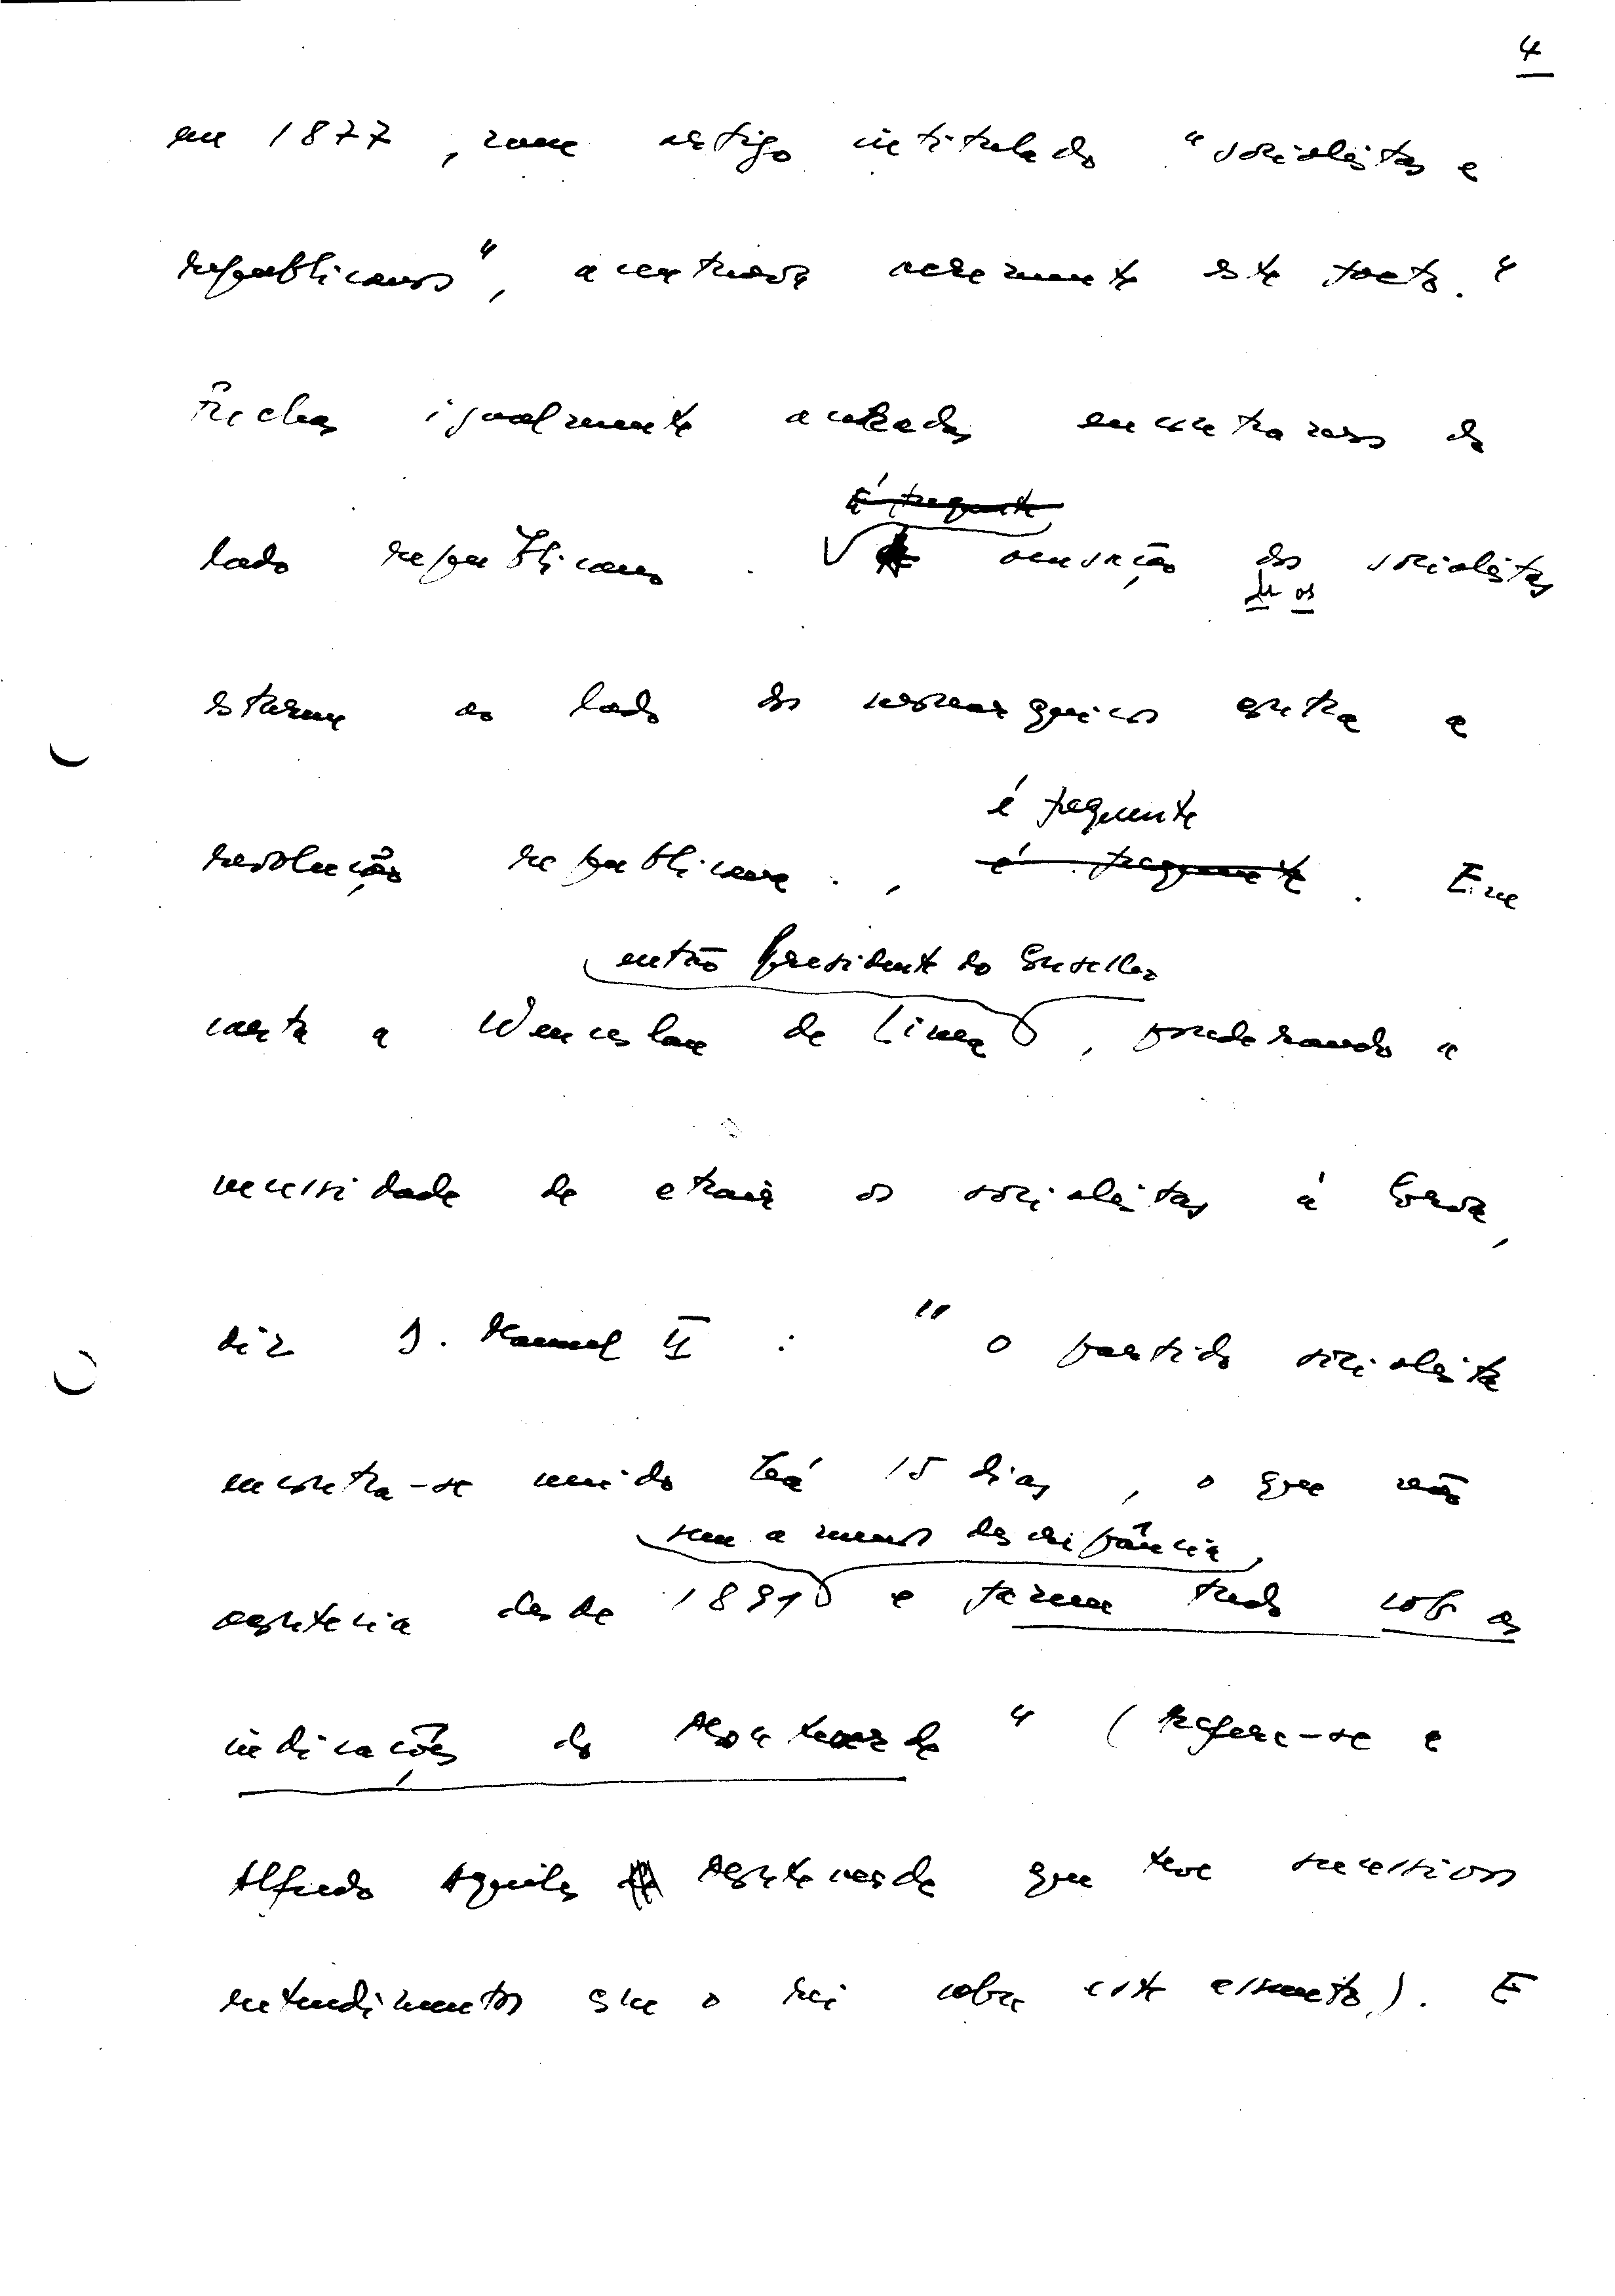 4
em 1877, num artigo intitulado "socialistas e
republicanos", acentuava acremente este facto."
Frechas igualmente aceradas encontramos do
lado republicano. A acusação dos socialistas
de os
estarem ao lado dos monárquicos contra a
é frequente
revolução republicana, é frequente. Em
então Presidente do Conselho
carta a Wenceslau de Lima, ponderando a
necessidade de atrair os socialistas à Coroa,
diz D. Manuel II : "o partido socialista
encontra-se unido há 15 dias, o que não
sem a menor discrepância,
acontecia desde 1891 e fazem tudo sob as
indicações do Monteverde" (refere-se a
Alfredo Aquiles Monteverde que teve sucessivos
entendimentos com o rei sobre este assunto). E